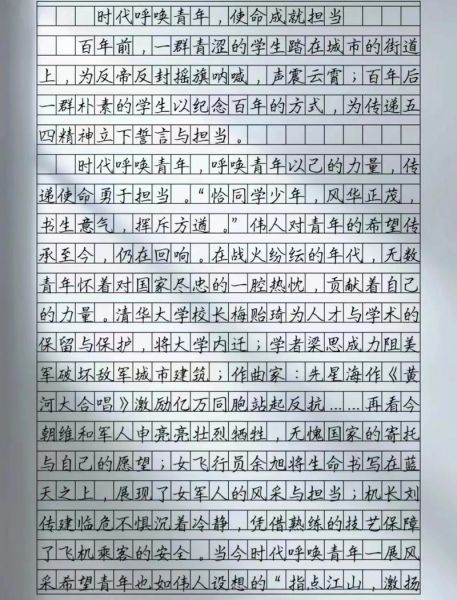 时代呼唤青年，使命成就担当
百年前，一群青涩的学生踏在城市的街道
上，为反帝反封摇旗呐喊，声震云霄；百年后
一群朴素的学生以纪念百年的方式，为传递五
四精神立下誓言与担当。
时代呼唤青年，呼唤青年以己的力量，传
递使命勇于担当。“恰同学少年，风华正茂，
书生意气，挥斥方遒。”伟人对青年的希望传
承至今，仍在回响。在战火纷纭的年代，无数
青年怀着对国家尽忠的一腔热忱，贡献着自己
的力量。清华大学校长梅贻琦为人才与学术的
保留与保护，将大学内迁；学者梁思成力阻美
军破坏敌军城市建筑；作曲家：先星海作《黄
河大合唱》激励亿万同胞站起反抗……再看今
朝维和军人申亮亮壮烈牺牲，无愧国家的寄托
与自己的愿望；女飞行员余旭将生命书写在蓝
天之上，展现了女军人的风采与担当；机长刘
传建临危不惧沉着冷静，凭借熟练的技艺保障
了飞机乘客的安全。当今时代呼唤青年一展风
采希望青年也如伟人设想的“指点江山，激扬